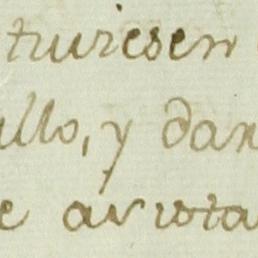 tuviesen
ullo, y dan
e avvia